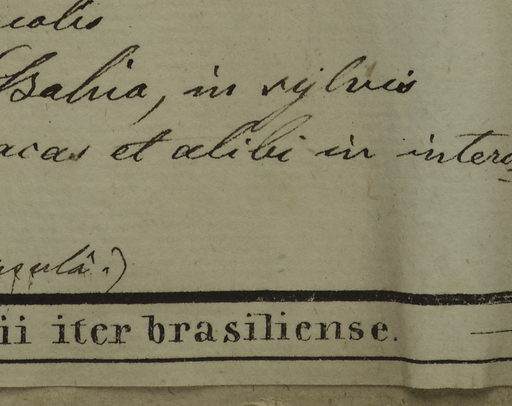 Bahia, in sylvis
acas et alibi in intero
ii iter brasiliense.